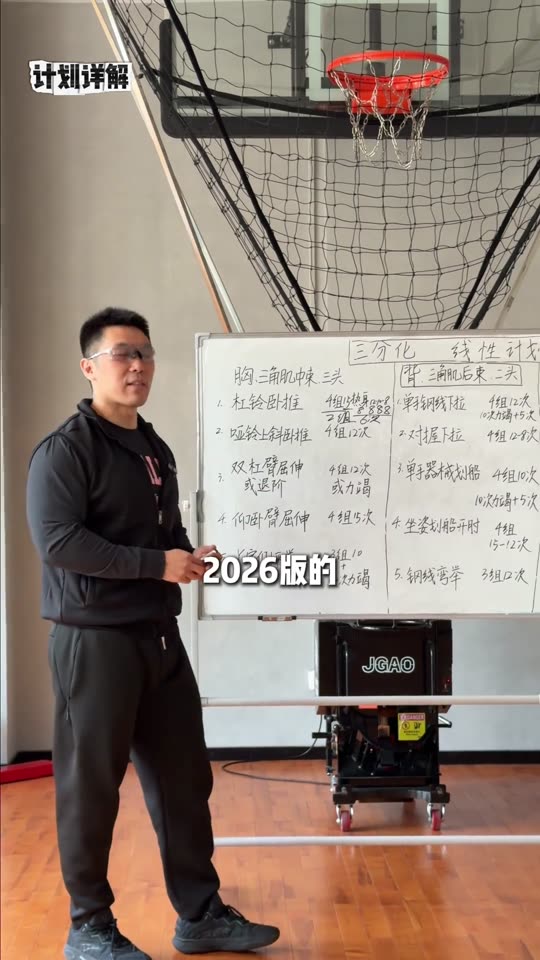 计划详解
三分化 线性计划
胸.三角肌中束 三头
1. 杠铃卧推 4组
8 8 8 8
2组 6次
2. 哑铃上斜卧推 4组12次
3. 双杠臂屈伸 4组12次
或退阶 或力竭
4. 仰卧臂屈伸 4组15次
3组10
力竭
背 三角肌后束.二头
1. 单手钢线下拉 4组12次
10次力竭+5次
2. 对握下拉 4组12-8次
3. 单手器械划船 4组10次
10次力竭+5次
4. 坐姿划船开肘 4组
15-12次
5. 钢线弯举 3组12次
2026版的
JGAO
DANGER